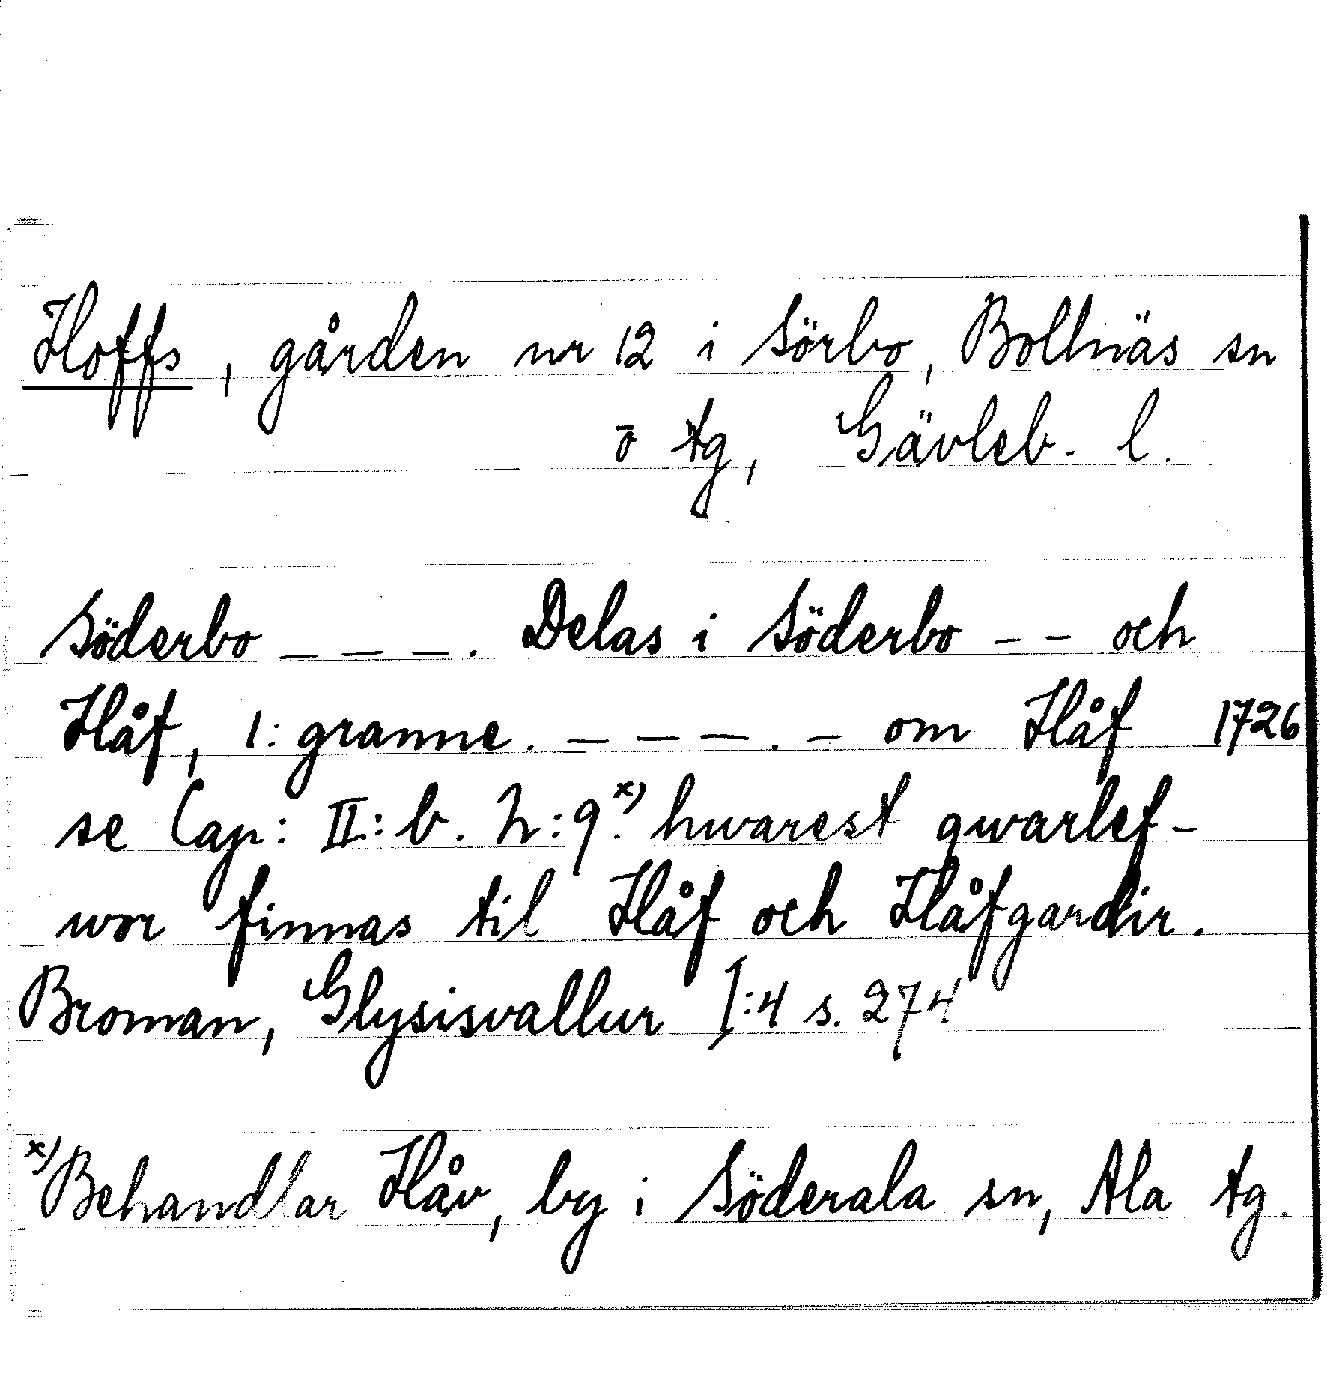 Hoffs, gården nr 12 i Sörbo, Bollnäs sn
o tg, Gävleb. l.
Söderbo _ _ _ . Delas i Söderbo _ _ och
Håf, 1: granne. _ _ _ . _ om Håf 1726
se Cap: II.: b. h:9.x) hwarest qwarlef-
wor finnas til Håf och Håfgardir.
Broman, Glysisvallur I:4 s. 274
x) Behandlar Håv, by i Söderala sn, Ala tg.